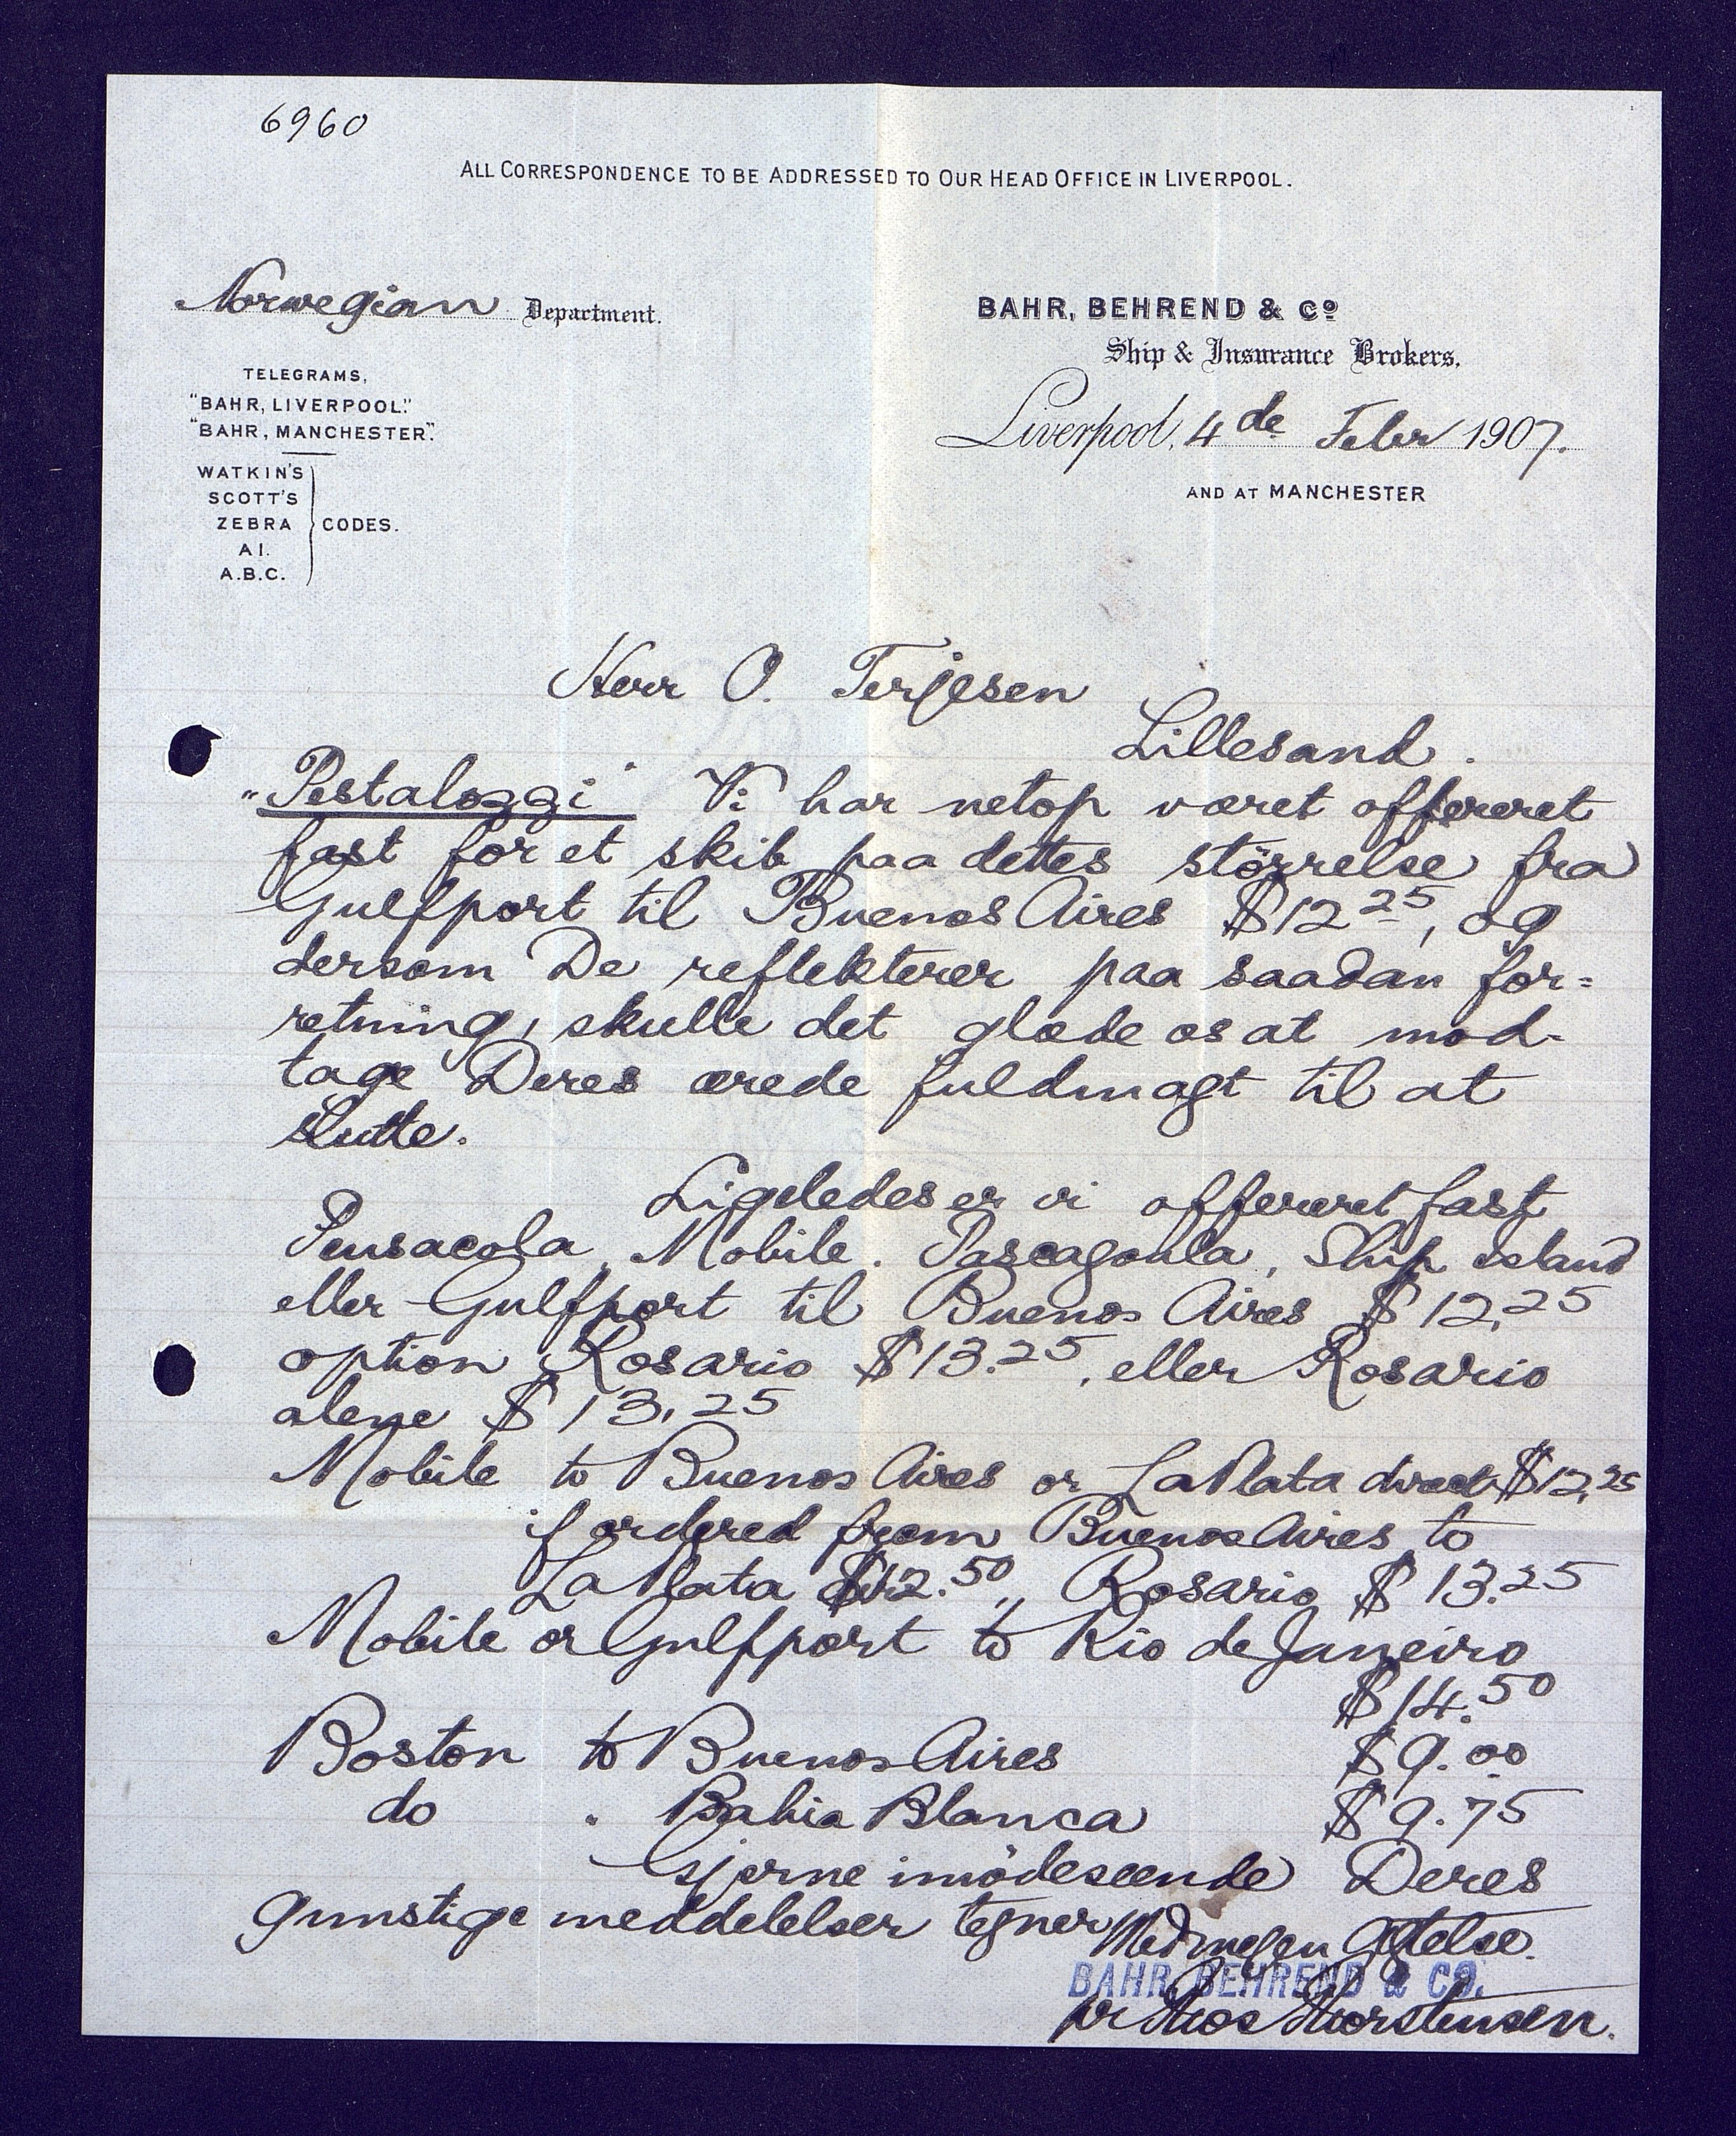 6960
ALL CORRESPONDENCE TO BE ADDRESSED TO OUR HEAD OFFICE IN LIVERPOOL.
Norwegian Department.
BAHR, BEHREND & Co
Ship & Insurance Brokers.
Liverpool, 4de Febr 1907.
AND AT MANCHESTER
TELEGRAMS,
"BAHR, LIVERPOOL."
"BAHR, MANCHESTER".
WATKIN'S
SCOTT'S
ZEBRA } CODES.
A I.
A.B.C.
Herr O. Terjesen
Lillesand.
"Pestalozzi" Vi har netop været offereret
fast for et skib paa dettes störrelse fra
Gulfport til Buenos Aires $12 25, og
dersom De reflekterer paa saadan for=
retning, skulle det glæde os at mod-
tage Deres ærede fuldmagt til at
slutte.
Ligeledes er vi offereret fast
Pensacola, Mobile. Pascagoula, Ship Island
eller Gulfport til Buenos Aires $ 12,25
option Rosario $13.25, eller Rosario
alene $ 13,25
Mobile to Buenos Aires or La Plata direct $12,25
if ordered from Buenos Aires to
La Plata $12.50,, Rosario $ 13.25
Mobile or Gulfport to Rio de Janeiro
$14.50
Boston to Buenos Aires $9.00
do " Bahia Blanca $9.75
Gjerne imödeseende Deres
gunstige meddelelser tegner
Med megen Agtelse.
BAHR, BEHREND & CO.
pr Thos Thorstensen.